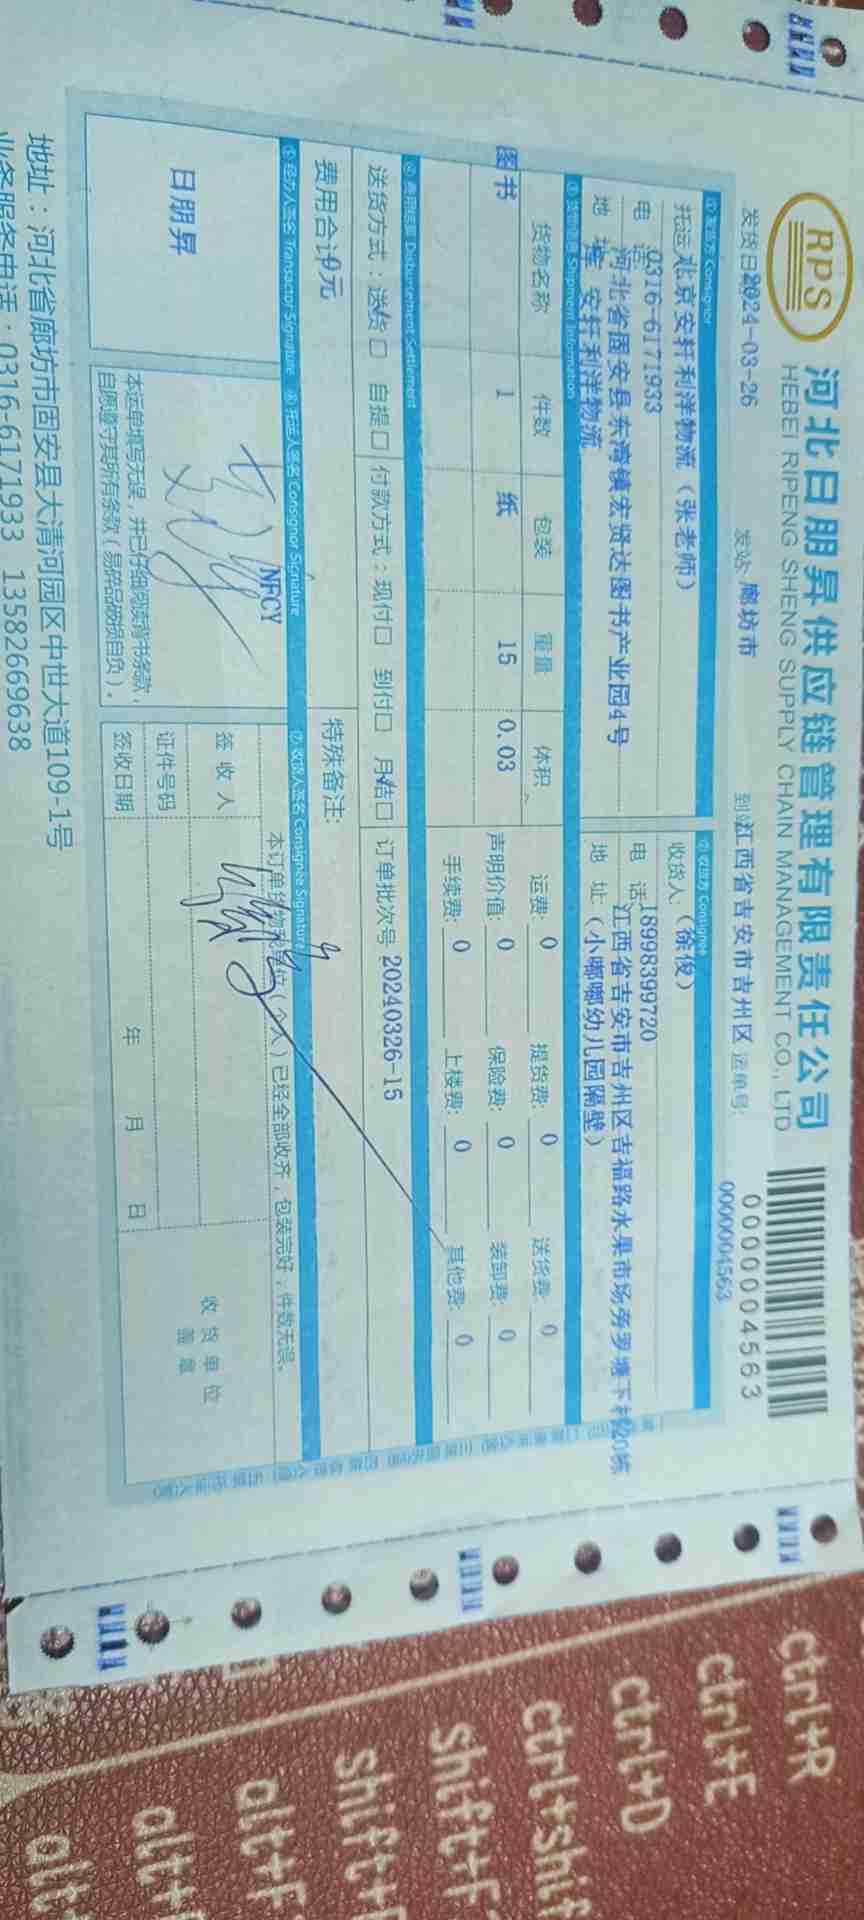 RPS
河北日朋昇供应链管理有限责任公司
HEBEI RIPENG SHENG SUPPLY CHAIN MANAGEMENT CO., LTD
0000004563
发货日期2024-03-26
发站 廊坊市
到站江西省吉安市吉州区
运单号:
0000004563
① 发货方 Consignor
托运人北京安轩利洋物流（张老师）
电 话0316-6171933
地 址河北省固安县东湾镇宏贤达图书产业园4号
库 安轩利洋物流
② 收货方 Consignee
收货人（徐俊）
电 话18998399720
地 址江西省吉安市吉州区吉福路水果市场旁罗塘下村20栋
（小嘟嘟幼儿园隔壁）
③ 货物信息 Shipment Information
货物名称 件数 包装 重量 体积
图书 1 纸 15 0.03
运费: 0 提货费: 0 送货费: 0
声明价值: 0 保险费: 0 装卸费: 0
手续费: 0 上楼费: 0 其他费: 0
④ 费用结算 Disbursement Settlement
送货方式：送货 自提 付款方式：现付 到付 月结 订单批次号 20240326-15
费用合计0元
特殊备注:
⑤ 经办人签名 Transactor Signature
⑥ 托运人签名 Consignor Signature
⑦ 收货人签名 Consignee Signature
日朋昇
NFCY
本运单填写无误，并已仔细阅读背书条款，
自愿遵守其所有条款（易碎品破损自负）。
本订单货物我单位（个人）已经全部收齐，包装完好，件数无误。
签 收 人
证件号码
签收日期 年 月 日
收 货 单 位
盖 章
地址：河北省廊坊市固安县大清河园区中世大道109-1号
业务服务电话：0316-6171933 13582669638
ctrl+R
ctrl+E
ctrl+D